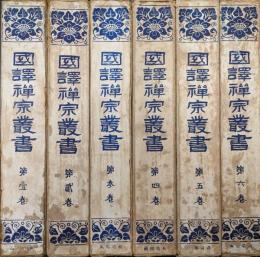 國譯禪宗叢書
第壹卷
國譯禪宗叢書
第貳卷
國譯禪宗叢書
第參卷
國譯禪宗叢書
第四卷
國譯禪宗叢書
第五卷
國譯禪宗叢書
第六卷